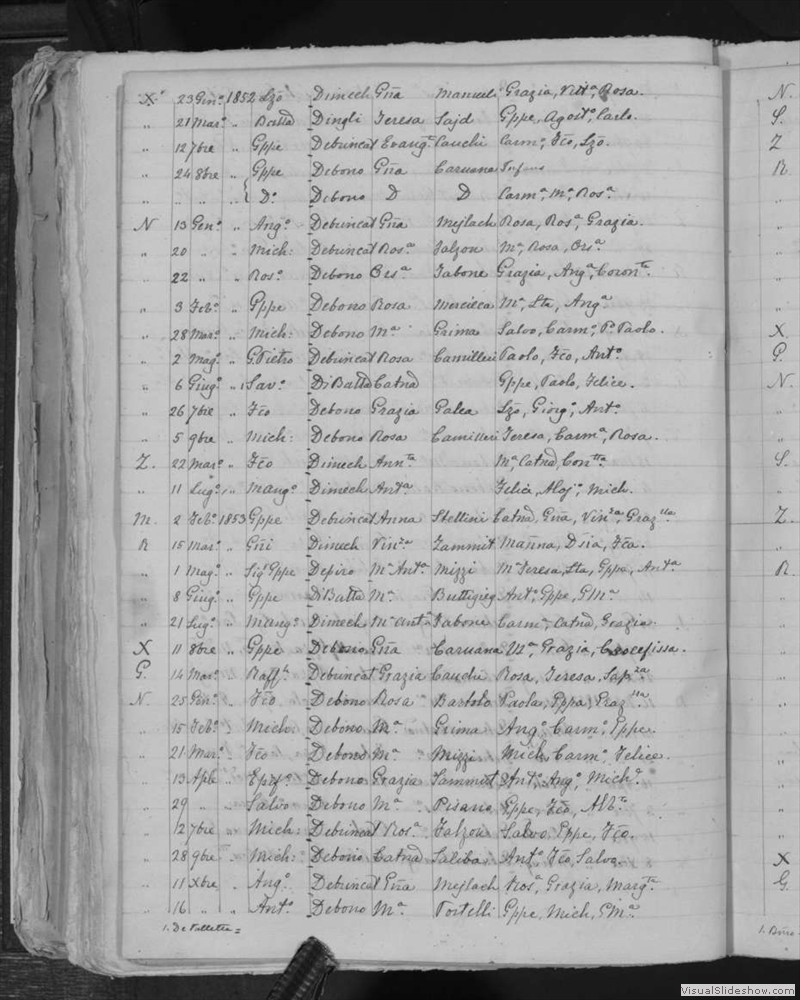 X. 23 Genº 1852 Lzõ Dimech Gña Manuel: Grazia, Vittª, Rosa.
" 21 Marº " Batta Dingli Teresa Sajd Gppe, Agostº, Carlo.
" 12 7bre " Gppe Debrincat Evangª Cauchi Carmª, Fcõ, Lzõ.
" 24 8bre " Gppe Debono Gña Caruana
" " " " Dº Debono D D Carmª, Mª, Rosª
N 13 Genº " Angº Debrincat Gña Mejlach Rosa, Rosª, Grazia.
" 20 " " Mich: Debrincat Rosª Falzon Mª, Rosa, Orsª
" 22 " " Rosº Debono Orsª Tabone Grazia, Angª, Coronta
" 3 Febº " Gppe Debono Rosa Mercieca Mª, Lta, Angª
" 28 Marº " Mich: Debono Mª Grima Salvo, Carmª, Pº Paolo.
" 2 Magº " G. Pietro Debrincat Rosa Camilleri Paolo, Fcõ, Antº
" 6 Giugº " 1 Savº DiBatta Catnã Gppe, Paolo, Felice.
" 26 7bre " Fcõ Debono Grazia Galea Lzõ, Giorgº, Antº
" 5 9bre " Mich: Debono Rosa Camilleri Teresa, Carmª, Rosa.
Z. 22 Marº " Fcõ Dimech Annta Mª, Catnã, Contta
" 11 Lugº " Mangº Dimech Antª Felice, Alojº, Mich.
M. 2 Febº 1853 Gppe Debrincat Anna Stellini Catnã, Gña, Vinza, Grazlla
R 15 Marº " Gñi Dimech Vinza Zammit Mañna, Fcã.
" 1 Magº " Sigr Gppe Depiro Mª Antª Mizzi Mª Teresa, Lta, Gppe, Antª
" 8 Giugº " Gppe DiBatta Mª Buttigieg Antº, Gppe, GMª
" 21 Lugº " Mangº Dimech Mª Antª Tabone Carmª, Catnã, Grazia.
X 11 8bre " Gppe Debono Gña Caruana Mª, Grazia, Crocefissa.
G. 14 Marº " Raffl: Debrincat Grazia Cauchi Rosa, Teresa, Sapza
N. 25 Genº " Fcõ Debono Rosa Bartolo Paola, Gppa, Grazlla
" 15 Febº " Mich: Debono Mª Grima Angº, Carmº, Gppe.
" 21 Marº " Fcõ Debono Mª Mizzi Mich, Carmº, Felice.
" 13 Aple " Debono Grazia Sammut Antº, Angº, Michº
" 29 " " Salvo Debono Mª Pisano Gppe, Fcõ, Albto
" 12 7bre " Mich: Debrincat Rosª Falzon Salvo, Gppe, Fcõ.
" 28 9bre " Mich: Debono Catnã Saliba Antº, Fcõ, Salvo.
" 11 Xbre " Angº Debrincat Gña Mejlach Rosª, Grazia, Margta
" 16 " " Antº Debono Mª Portelli Gppe, Mich, GMª
1. De Valletta =
N.
S.
Z
R
X.
G.
N.
S.
Z.
R.
X
G.
VisualSlideshow.com